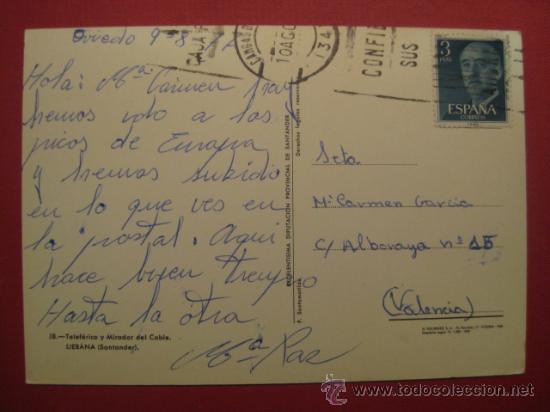 Oviedo 9-8
CAJA
CANGAS D
10 AGO
134
CONFIE
SUS
3
PTAS
ESPAÑA
CORREOS
Hola: Mª Carmen hoy
hemos ido a los
picos de Europa
y hemos subido
en lo que ves en
la postal. Aqui
hace buen tiempo
Hasta la otra
Mª Paz
18.—Teleférico y Mirador del Cable.
LIEBANA (Santander).
EXCELENTISIMA DIPUTACION PROVINCIAL DE SANTANDER
Derechos legales reservados
Srta
Mª Carmen García
C/ Alboraya nº 15
(Valencia)
todocoleccion.net